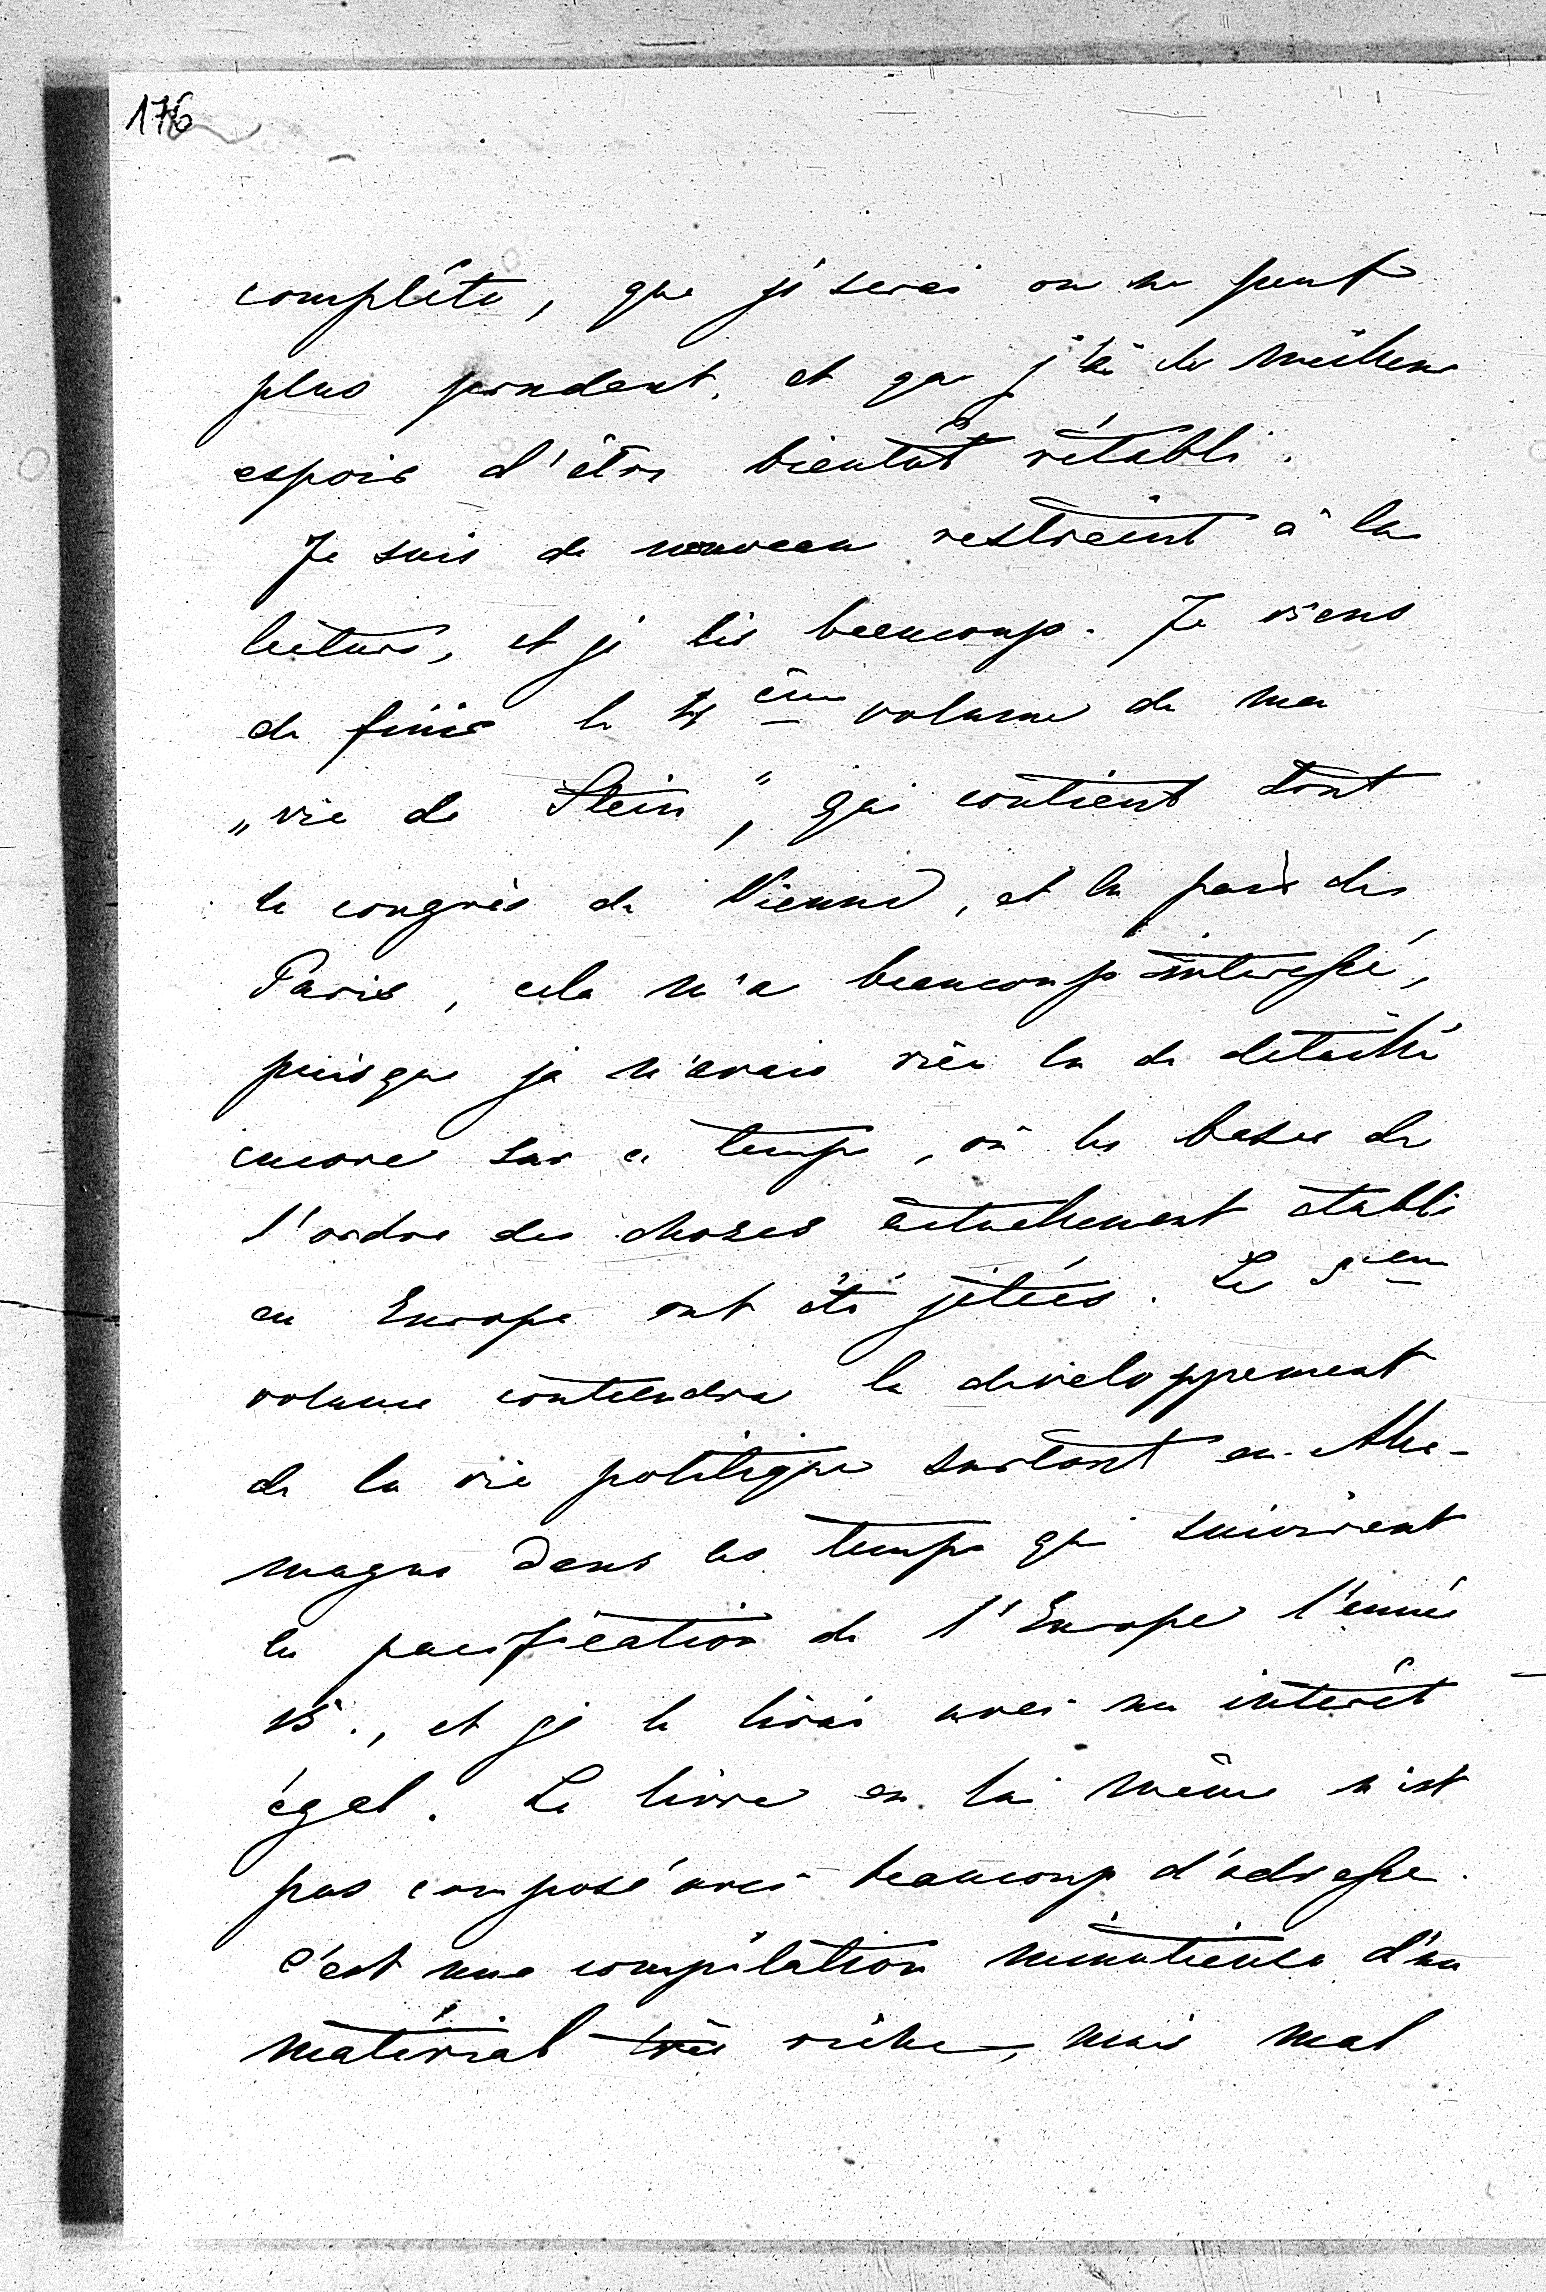 176
complète, que je serai on ne peut
plus prudent, et que j'ai le meilleur
espoir d'être bientôt rétabli.
Je suis de nouveau restreint à la
lecture, et je lis beaucoup. Je viens
de finir le 4ème volume de ma
„vie de Stein", qui contient tout
le congrès de Vienne, et la paix de
Paris, cela m'a beaucoup interessé,
puisque je n'avais rien lu de détaillé
encore sur ce temps, où les bases de
l'ordre des choses actuellement établi
en Europe ont été jetées. Le 5em
volume contiendra le developpement
de la vie politique surtout en Alle-
magne dans les temps qui suivirent
la pacification de l'Europe l'année
15., et je le lirai avec un intérêt
égal. Le livre en lui même n'est
pas composé avec beaucoup d'adresse.
c'est une compilation minutieuse d'un
matérial très riche, mais mal